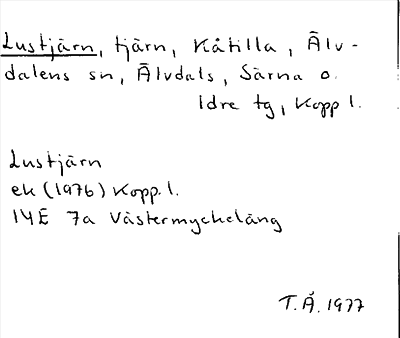 Lustjärn, tjärn, Kåtilla, Älv-
dalens sn, Älvdals, Särna o.
Idre tg, Kopp l.
Lustjärn
ek (1976) Kopp. l.
14E 7a Västermyckeläng
T.Å. 1977